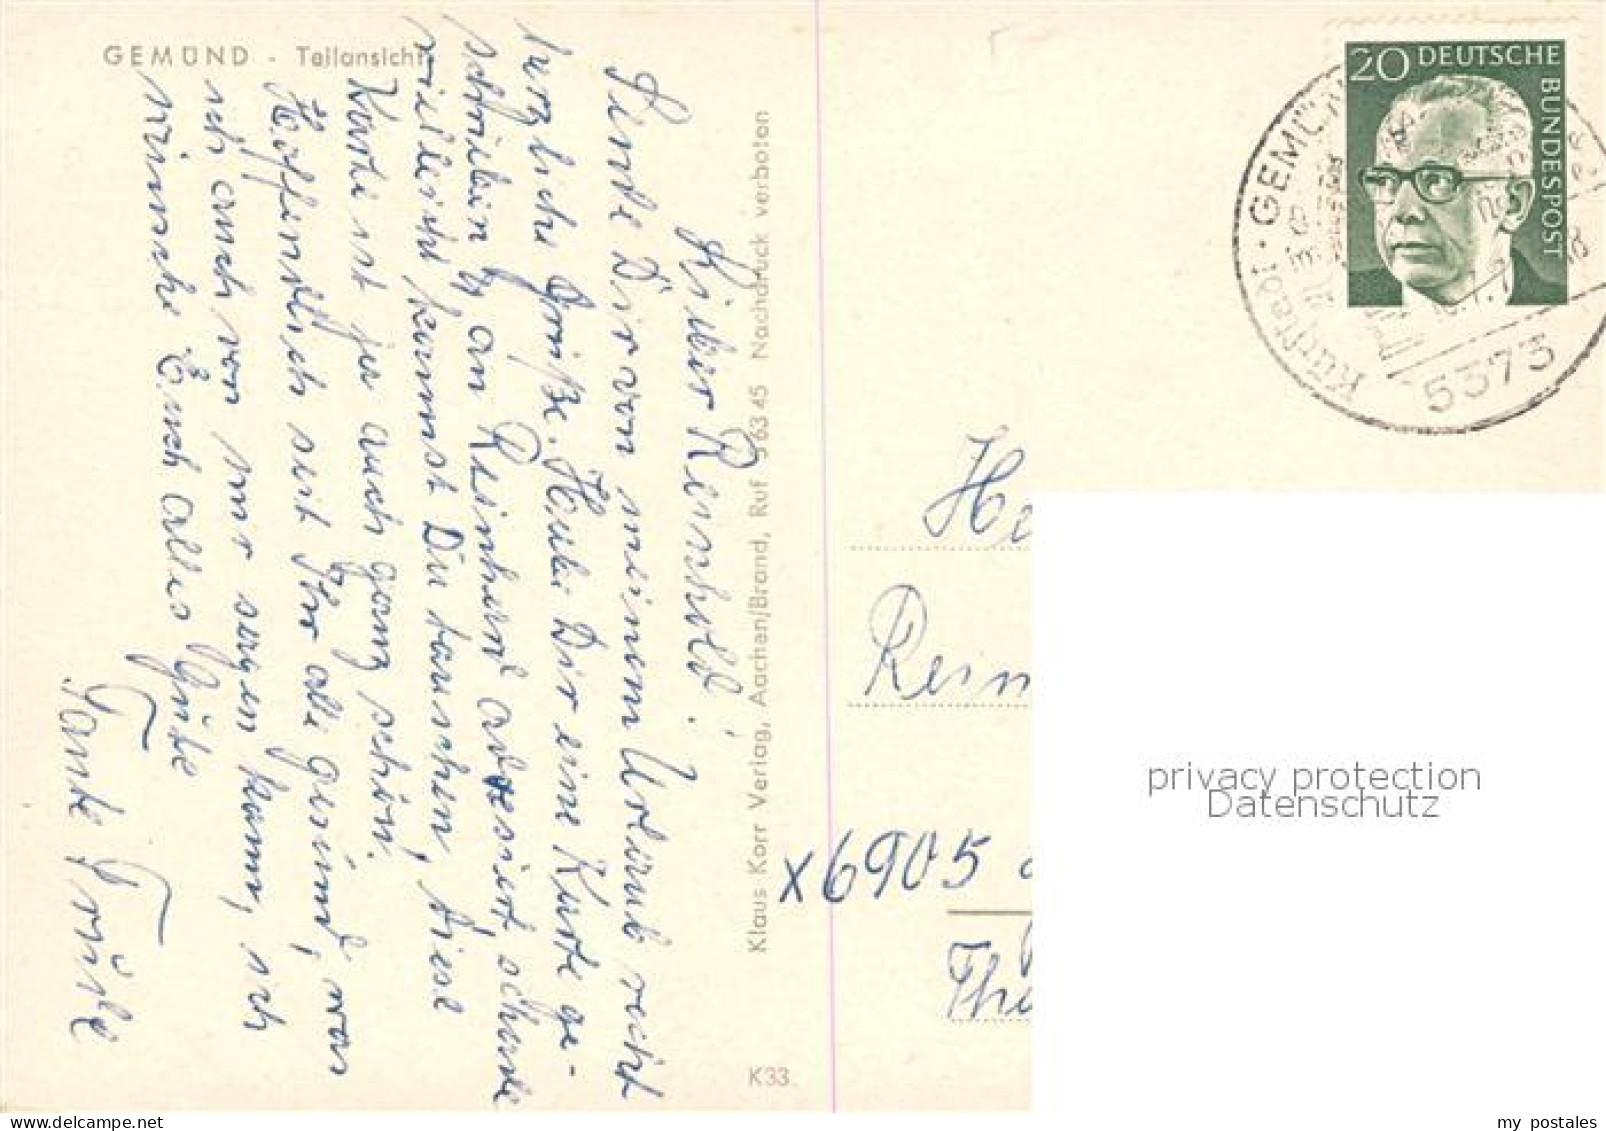 GEMÜND - Teilansicht
Lieber Reinhold!
Sende Dir von meinem Urlaub recht
herzliche Grüße. Habe Dir eine Karte ge-
schrieben u. an Reinhard adressiert, schade
vielleicht kannst Du tauschen, diese
Karte ist ja auch ganz schön.
Hoffentlich seit Ihr alle gesund, was
ich auch von mir sagen kann, ich
wünsche Euch alles Gute
Tante
Klaus Korr Verlag, Aachen/Brand, Ruf 5 63 45 Nachdruck verboten
K33
20 DEUTSCHE
BUNDESPOST
GEMÜN
5373
He
Rein
x6905
Thü
privacy protection
Datenschutz
my postales